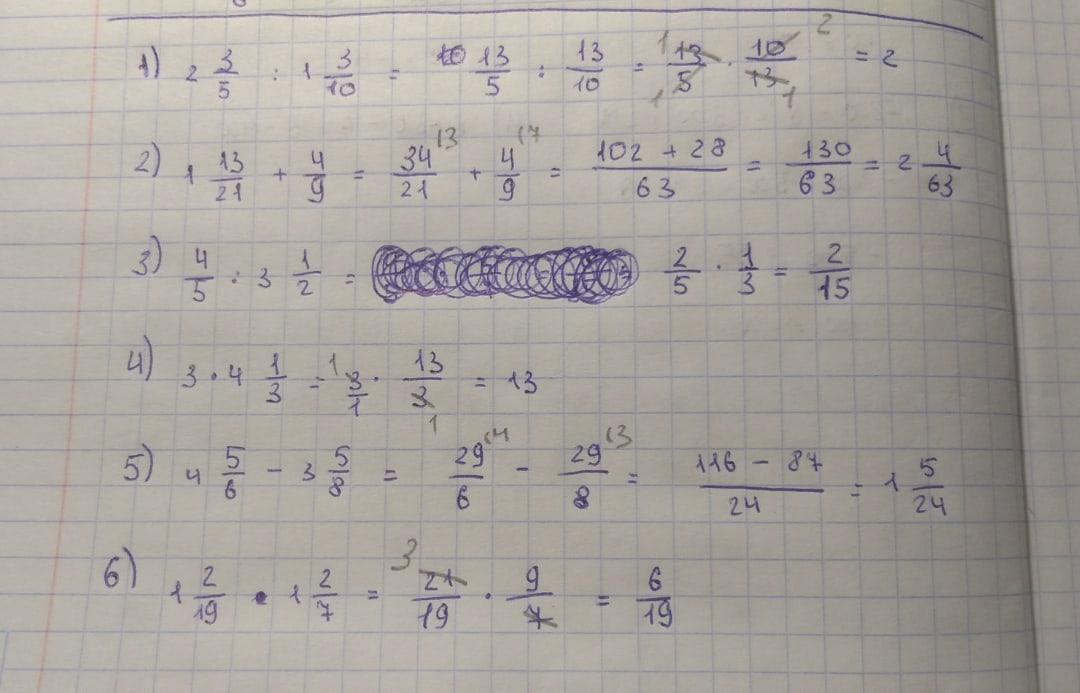 1) 2 3/5 : 1 3/10 = 13/5 : 13/10 = 13/5 · 10/13 = 2
2) 1 13/21 + 4/9 = 34/21 (3 + 4/9 (7 = 102 + 28/63 = 130/63 = 2 4/63
3) 4/5 : 3 1/2 = 2/5 · 1/3 = 2/15
4) 3 · 4 1/3 = 3/1 · 13/3 = 13
5) 4 5/6 - 3 5/8 = 29/6 (4 - 29/8 (3 = 116 - 87/24 = 1 5/24
6) 1 2/19 · 1 2/7 = 3 21/19 · 9/7 = 6/19